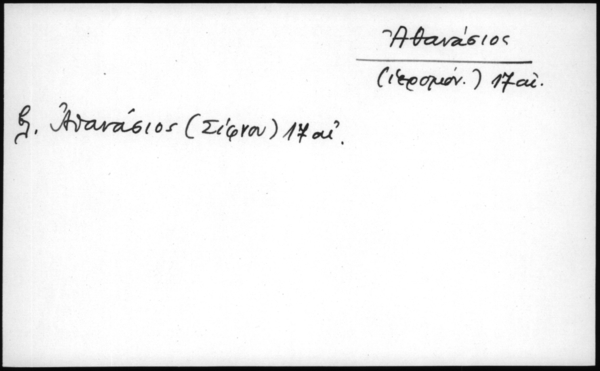 Ἀθανάσιος
(ἱερομόν.) 17 αἰ.
Ἀθανάσιος (Σίφνου) 17 αἰ.